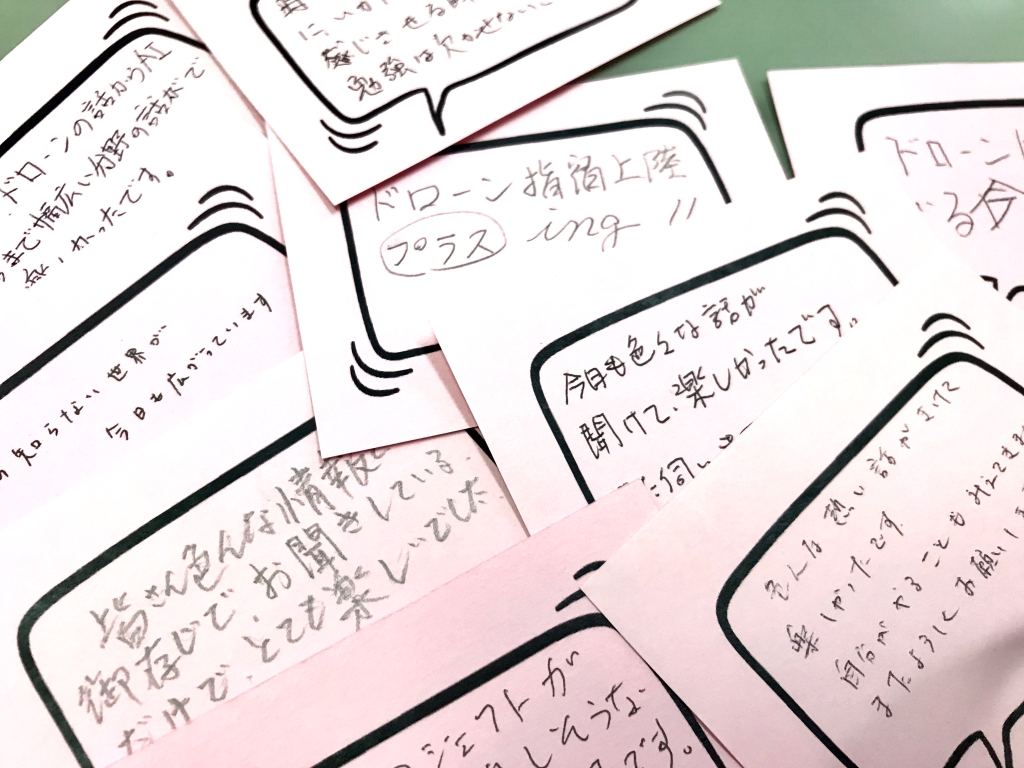 感じさせる
勉強は欠かせない
ドローンの話からAI
まで幅広い分野の話がで
良かったです。
知らない世界が
今日も広がっています
ドローン指宿上陸
プラス ing
ドローン
いる
今日も色々な話が
聞けて、楽しかったです。
た伺い
皆さん色んな情報
御存じで、お聞きしている
だけで、とても楽しいでした
色んな熱い話がきけて
楽しかったです。
自分がやることもみえてきま
またよろしくお願いしま
ジェクトが
しそうな
です。